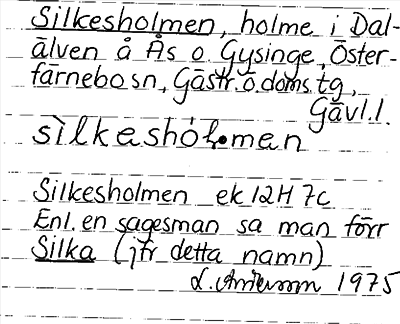 Silkesholmen, holme i Dal-
älven å Ås o Gysinge, Öster-
färnebo sn, Gästr. ö. doms. tg,
Gävl.l.
sìlkeshól̥men
Silkesholmen ek 12H 7c
Enl. en sagesman sa man förr
Silka (jfr detta namn)
L. Andersson 1975